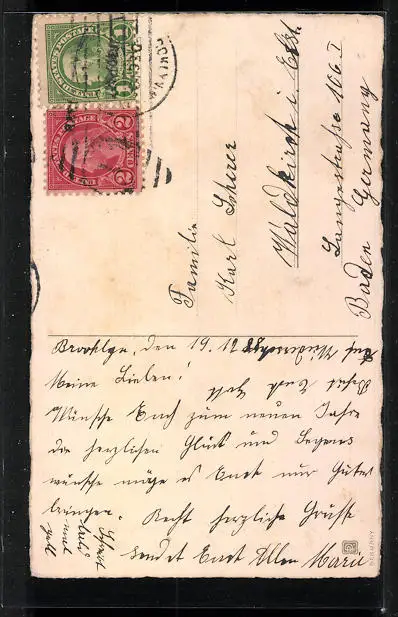 UNITED STATES POSTAGE
1
UNITED STATES POSTAGE
2 2
CENTS
Familie
Karl Scherer
Waldkirch i. Elst.
Langestraße 106 I
Baden Germany
Brooklyn, den 19. 12
Auf Wiedersehn
Meine Lieben!
Euch
Wünsche Euch zum neuen Jahre
die herzlichen Glück und Segens
wünsche möge es Euch nur Gutes
bringen. Recht herzliche Grüsse
sendet Euch Allen Marie
GERMANY